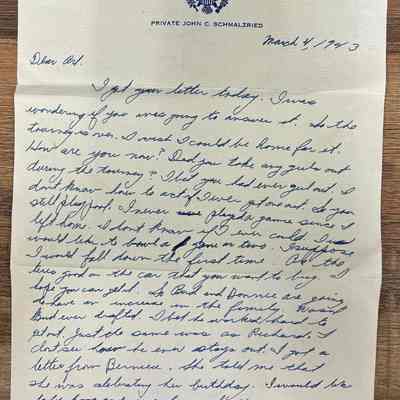 PRIVATE JOHN C. SCHMALZRIED
March 4, 1943
Dear Art.
I got your letter today. I was
wondering if you was going to answer it. So the
tourney is over. I wish I could be home for it.
How are you now? Did you take any girls out
during the tourney? I bet you had ever get out. I
dont know how to act if I ever get one out. Do you
still play pool. I never played a game since I
left home. I dont know if I ever could. I
would like to bowl a game or two. I suppose
I would fall down the first time. Are the
tires good on the car that you want to buy. I
hope you can get it. So Bud and Donnie are going
to have an increase in the family. Wasn't
Bud ever drafted. I bet he works hard to
get out just the same was as Richard. I
dont see how he ever stays out. I got a
letter from Berniece. She told me that
she was celebrating her birthday. I would like